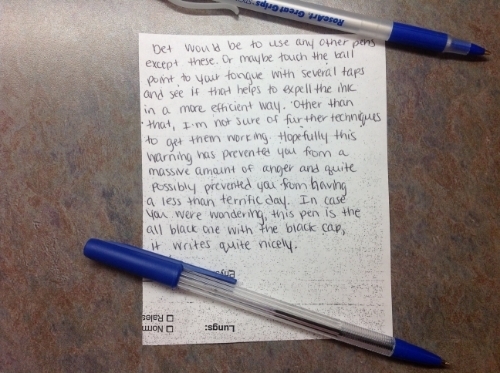 RoseArt. Great Grips
bet would be to use any other pens
except these. Or maybe touch the ball
point to your tongue with several taps
and see if that helps to expell the ink
in a more efficient way. Other than
that, I'm not sure of further techniques
to get them working. Hopefully this
warning has prevented you from a
massive amount of anger and quite
possibly prevented you from having
a less than terrific day. In case
you were wondering, this pen is the
all black one with the black cap,
it writes quite nicely.
Lungs:
Norm
Rales